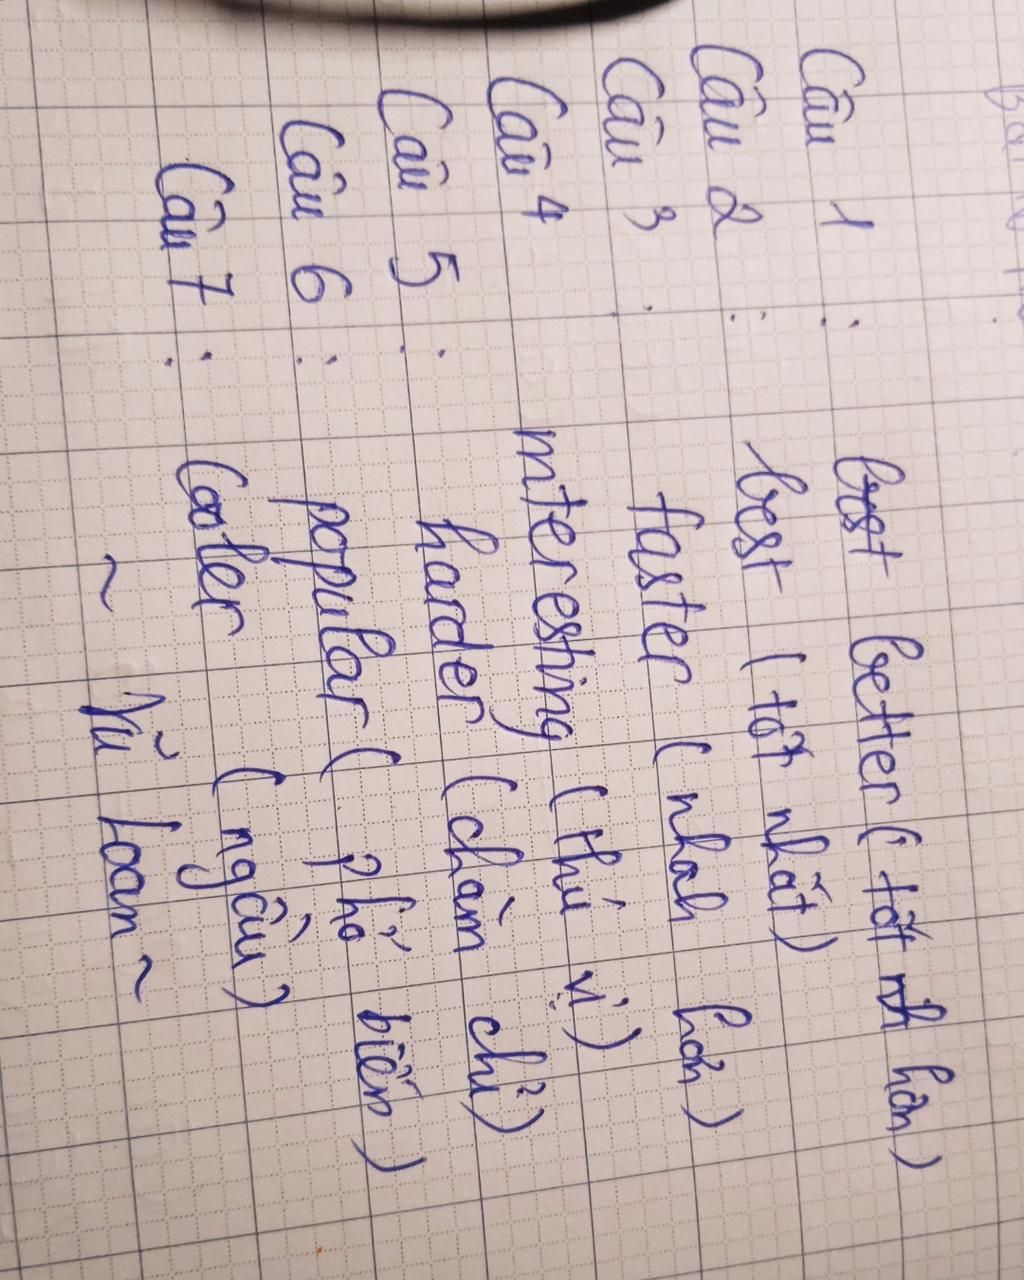 Câu 1 : better (tốt hơn)
Câu 2 : best (tốt nhất)
Câu 3 : faster (nhah hơn)
Câu 4 interesting (thú vị)
Câu 5 : harder (chăm chỉ)
Câu 6 : popular (phổ biến)
Câu 7 : Cooler (ngầu)
~ Vũ Loan ~